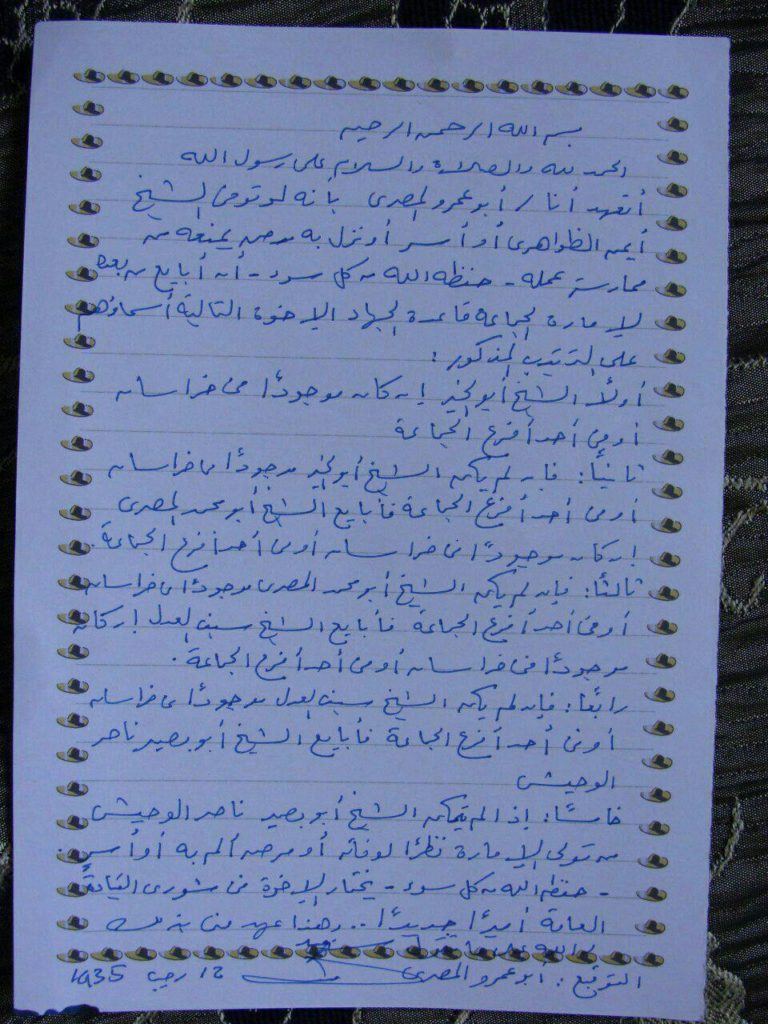 بسم الله الرحمن الرحيم
الحمد لله والصلاة والسلام على رسول الله
أتعهد أنا / أبو عمرو المصرى بأنه لو توفى الشيخ
أيمن الظواهرى أو أسر أو نزل به مرض يمنعه من
ممارسة عمله - حفظه الله من كل سوء - أن أبايع من بعده
لإمارة الجماعة قاعدة الجهاد الإخوة التالية أسماؤهم
على الترتيب المذكور :
أولًا الشيخ أبو الخير إن كان موجودًا فى خراسان
أو فى أحد أفرع الجماعة
ثانيًا: فإن لم يكن الشيخ أبو الخير موجودًا فى خراسان
أو فى أحد أفرع الجماعة فأبايع الشيخ أبو محمد المصرى
إن كان موجودًا فى خراسان أو فى أحد أفرع الجماعة.
ثالثًا: فإن لم يكن الشيخ أبو محمد المصرى موجودًا فى خراسان
أو فى أحد أفرع الجماعة فأبايع الشيخ سيف العدل إن كان
موجودًا فى خراسان أو فى أحد أفرع الجماعة .
رابعًا: فإن لم يكن الشيخ سيف العدل موجودًا فى خراسان
أو فى أحد أفرع الجماعة فأبايع الشيخ أبو بصير ناصر
الوحيشى
خامسًا: إذا لم يتمكن الشيخ أبو بصير ناصر الوحيشى
من تولى الإمارة نظرًا لوفاته أو مرض ألم به أو أسر .
- حفظه الله من كل سوء - يختار الإخوة فى شورى القيادة
العامة أميرًا جديدًا .. وهذا عهد منى بذلك
والله على ما
التوقيع : أبو عمرو المصرى 12 رجب 1435